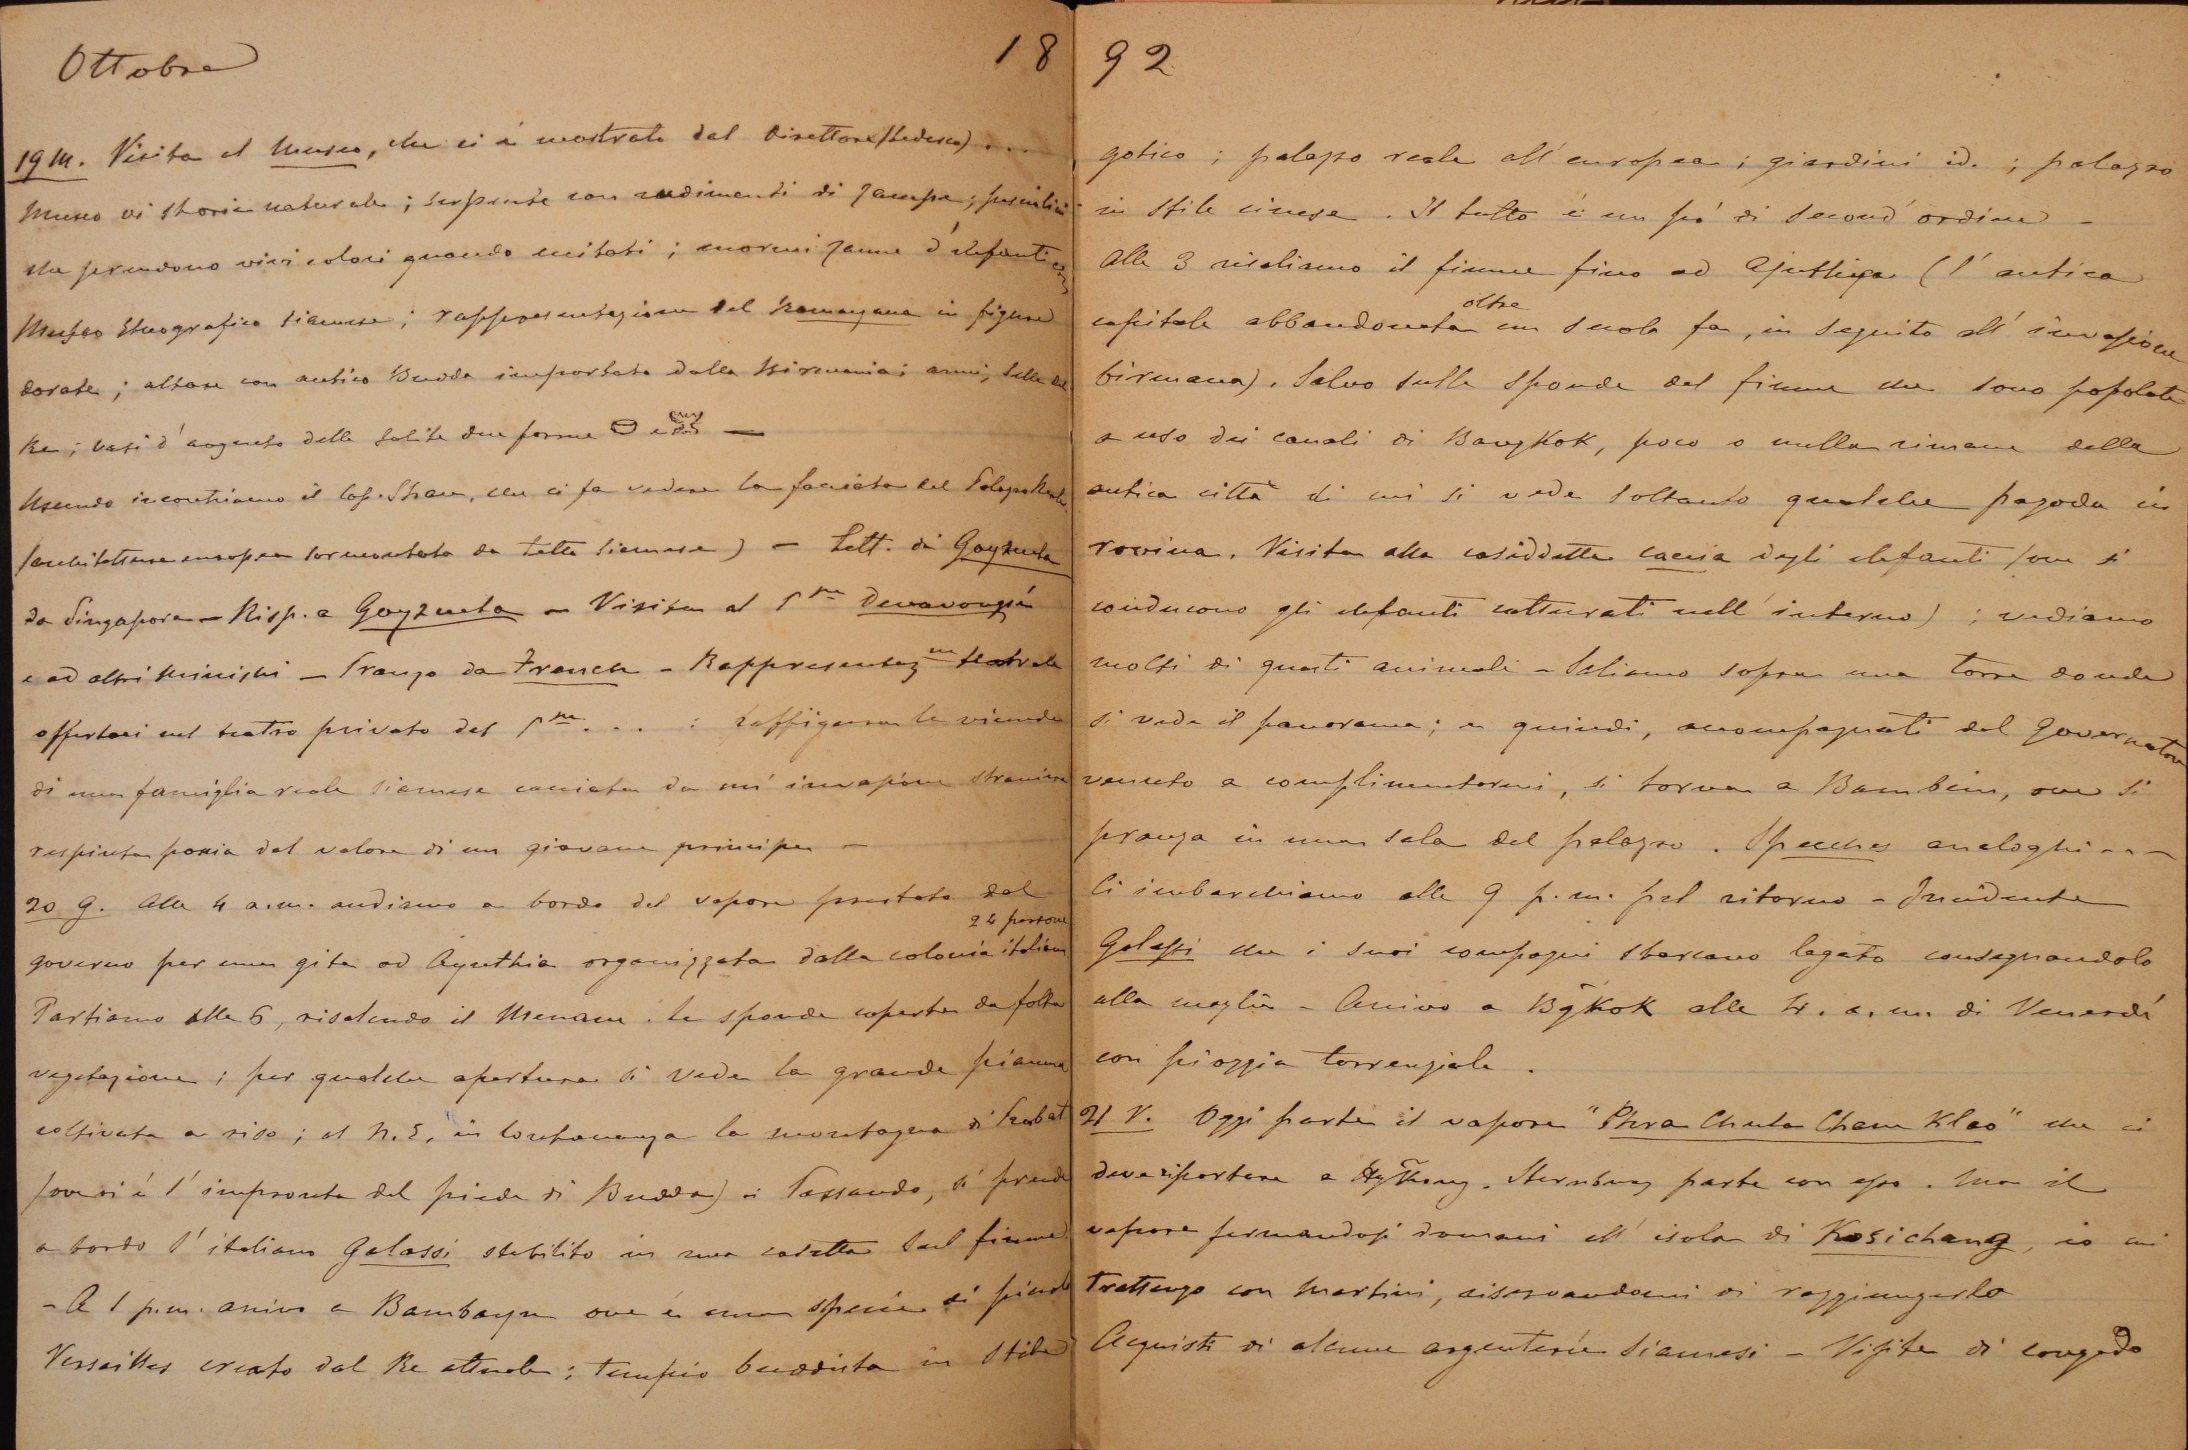 Ottobre 18 92
19 M. Visita al Museo, che ci è mostrato dal Direttore (tedesco) ...
Museo di storia naturale; serpente con rudimenti di zampe;
che prendono vivi colori quando irritati; enormi zanne d'elefanti
Museo Etnografico siamese; rappresentazione del Ramayana in figure
dorate; altare con antico Budda importato dalla Birmania; armi, selle del
Re; vasi d'argento delle solite due forme e —
Uscendo incontriamo il Cap. che ci fa vedere la facciata del Palazzo Reale
(architettura europea sormontata da tetto siamese) — Lett. di Goyzueta
da Singapore — Risp. a Goyzueta — Visita al Pre Devavongsé
e ad altri Ministri — Pranzo da French — Rappresentazne teatrale
offertaci nel teatro privato del Pre . . . : raffigura le vicende
di una famiglia reale siamese cacciata da un' invasione straniera
respinta poscia dal valore di un giovane principe —
20 G. Alle 4 a.m. andiamo a bordo del vapore prestato dal
24 persone
governo per una gita ad Ayuthia organizzata dalla colonia italiana
Partiamo alle 6, risalendo il Menam. Le sponde coperte da folta
vegetazione; per qualche apertura si vede la grande pianura
coltivata a riso; al N.E. in lontananza la montagna di Prabat
(ove vi è l'impronta del piede di Budda) — Passando, si prende
a bordo l'italiano Galassi stabilito in una casetta sul fiume
— A 1 p.m. arrivo a Bambayn ove è una specie di piccolo
Versailles creato dal Re attuale; tempio buddista in stile
gotico; palazzo reale all'europea; giardini id.; palazzo
in stile cinese. Il tutto è un po' di second'ordine —
Alle 3 risaliamo il fiume fino ad Ajuthiya (l'antica
oltre
capitale abbandonata un secolo fa, in seguito all'invasione
birmana). Salvo sulle sponde del fiume che sono popolate
a uso dei canali di Bangkok, poco o nulla rimane della
antica città di cui si vede soltanto qualche pagoda in
rovina. Visita alla cosiddetta caccia degli elefanti (ove si
conducono gli elefanti catturati nell'interno); vediamo
molti di questi animali — Saliamo sopra una torre donde
si vede il panorama; e quindi, accompagnati dal Governatore
venuto a complimentarmi, si torna a Bambein, ove si
pranza in una sala del palazzo. Speeches analoghi ---
Ci imbarchiamo alle 9 p.m. pel ritorno — Incidente
Galassi che i suoi compagni sbarcano legato consegnandolo
alla moglie — Arrivo a Bgkok alle 4. a.m. di Venerdì
con pioggia torrenziale.
21 V. Oggi parte il vapore "Phra Chula Chom Klao" che ci
deve riportare a HgKong. Sternburg parte con esso. Ma il
vapore fermandosi domani all'isola di Kosichang, io mi
trattengo con Martini, riservandomi di raggiungerlo
Acquisti di alcune argenterie siamesi — Visite di congedo